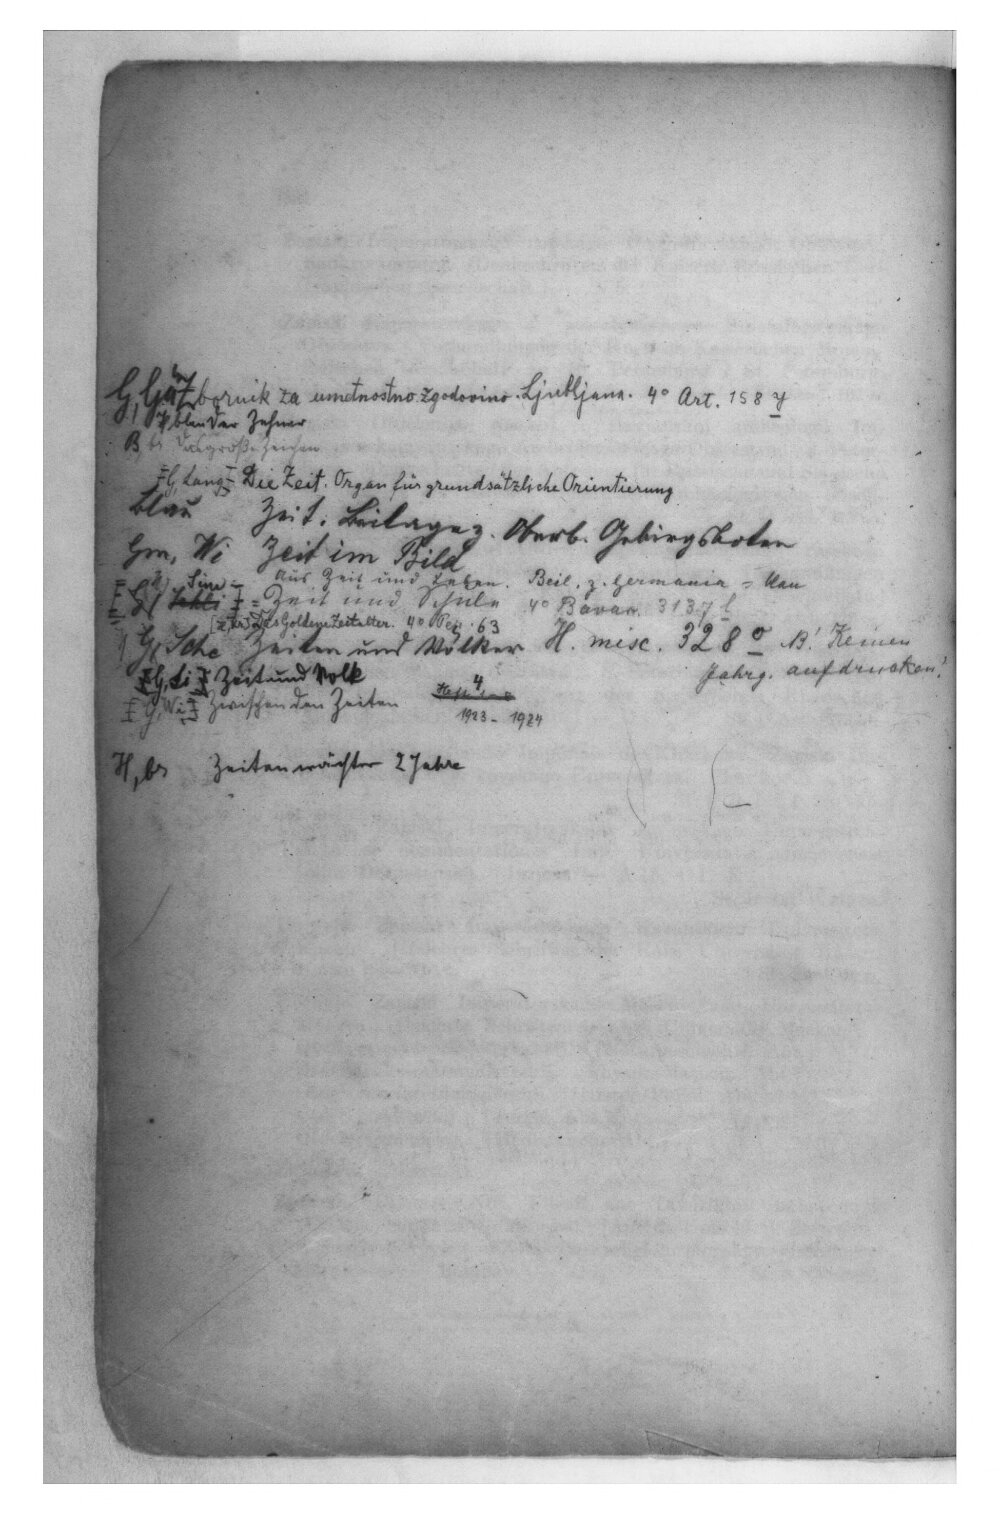 G, Gä Zbornik za umetnostno zgodovino. Ljubljana. 4° Art. 158 y
blau Der Zehner
B, br Das große Zeichen
G, Lang Die Zeit. Organ für grundsätzliche Orientierung
blau Zeit. Beilage z. Oberb. Gebirgsboten
Gm, Wi Zeit im Bild
Aus Zeit und Leben. Beil. z. Germania = blau
G, Zeit und Schule 4° Bavar. 3137 l
Das Goldene Zeitalter. 4° Per. 63
G, Sche Zeiten und Völker H. misc. 328 o N! Keinen
Jahrg. aufdrucken!
G, Li Zeit und Volk
G, Wi Zwischen den Zeiten
1923 - 1924
H, br Zeitenwächter 2 Jahre